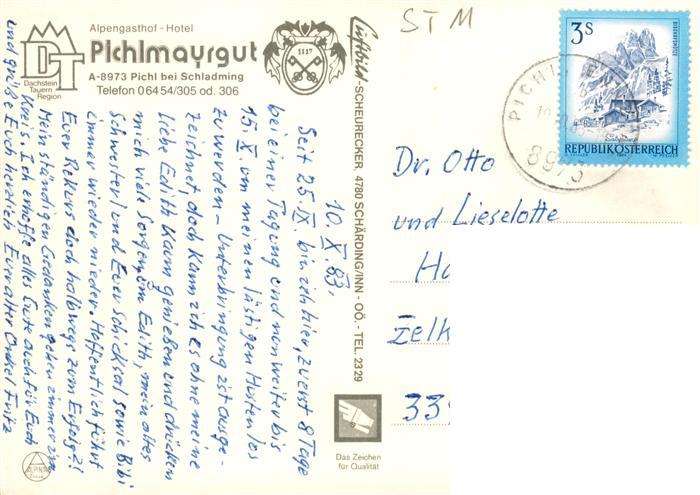 Alpengasthof - Hotel
Pichlmayrgut
A-8973 Pichl bei Schladming
Telefon 06454/305 od. 306
DT
Dachstein
Tauern
Region
1117
Luftbild - SCHEURECKER, 4780 SCHÄRDING/INN - OÖ. - TEL. 2329
STM
3 S
REPUBLIK ÖSTERREICH
PICHL
8973
10. X. 83.
Seit 25. IX. bin ich hier, zuerst 8 Tage
bei einer Tagung und nun weiter bis
15. X. um meinen lästigen Husten los
zu werden - Unterbringung ist ausge-
zeichnet doch kann ich es ohne meine
liebe Edith kaum genießen und drücken
mich viele Sorgen um Edith, mein altes
Schwesterl und Euer Schicksal sowie Bibi
immer wieder nieder. Hoffentlich führt
Euer Rekurs doch halbwegs zum Erfolg?!
Mein ständigen Gedanken gehen immer im
Kreis. Ich erhoffe alles Gute auch für Euch
und grüße Euch herzlich Euer alter Onkel Fritz
Dr. Otto
und Lieselotte
Ha
Zelk
339
Das Zeichen
für Qualität